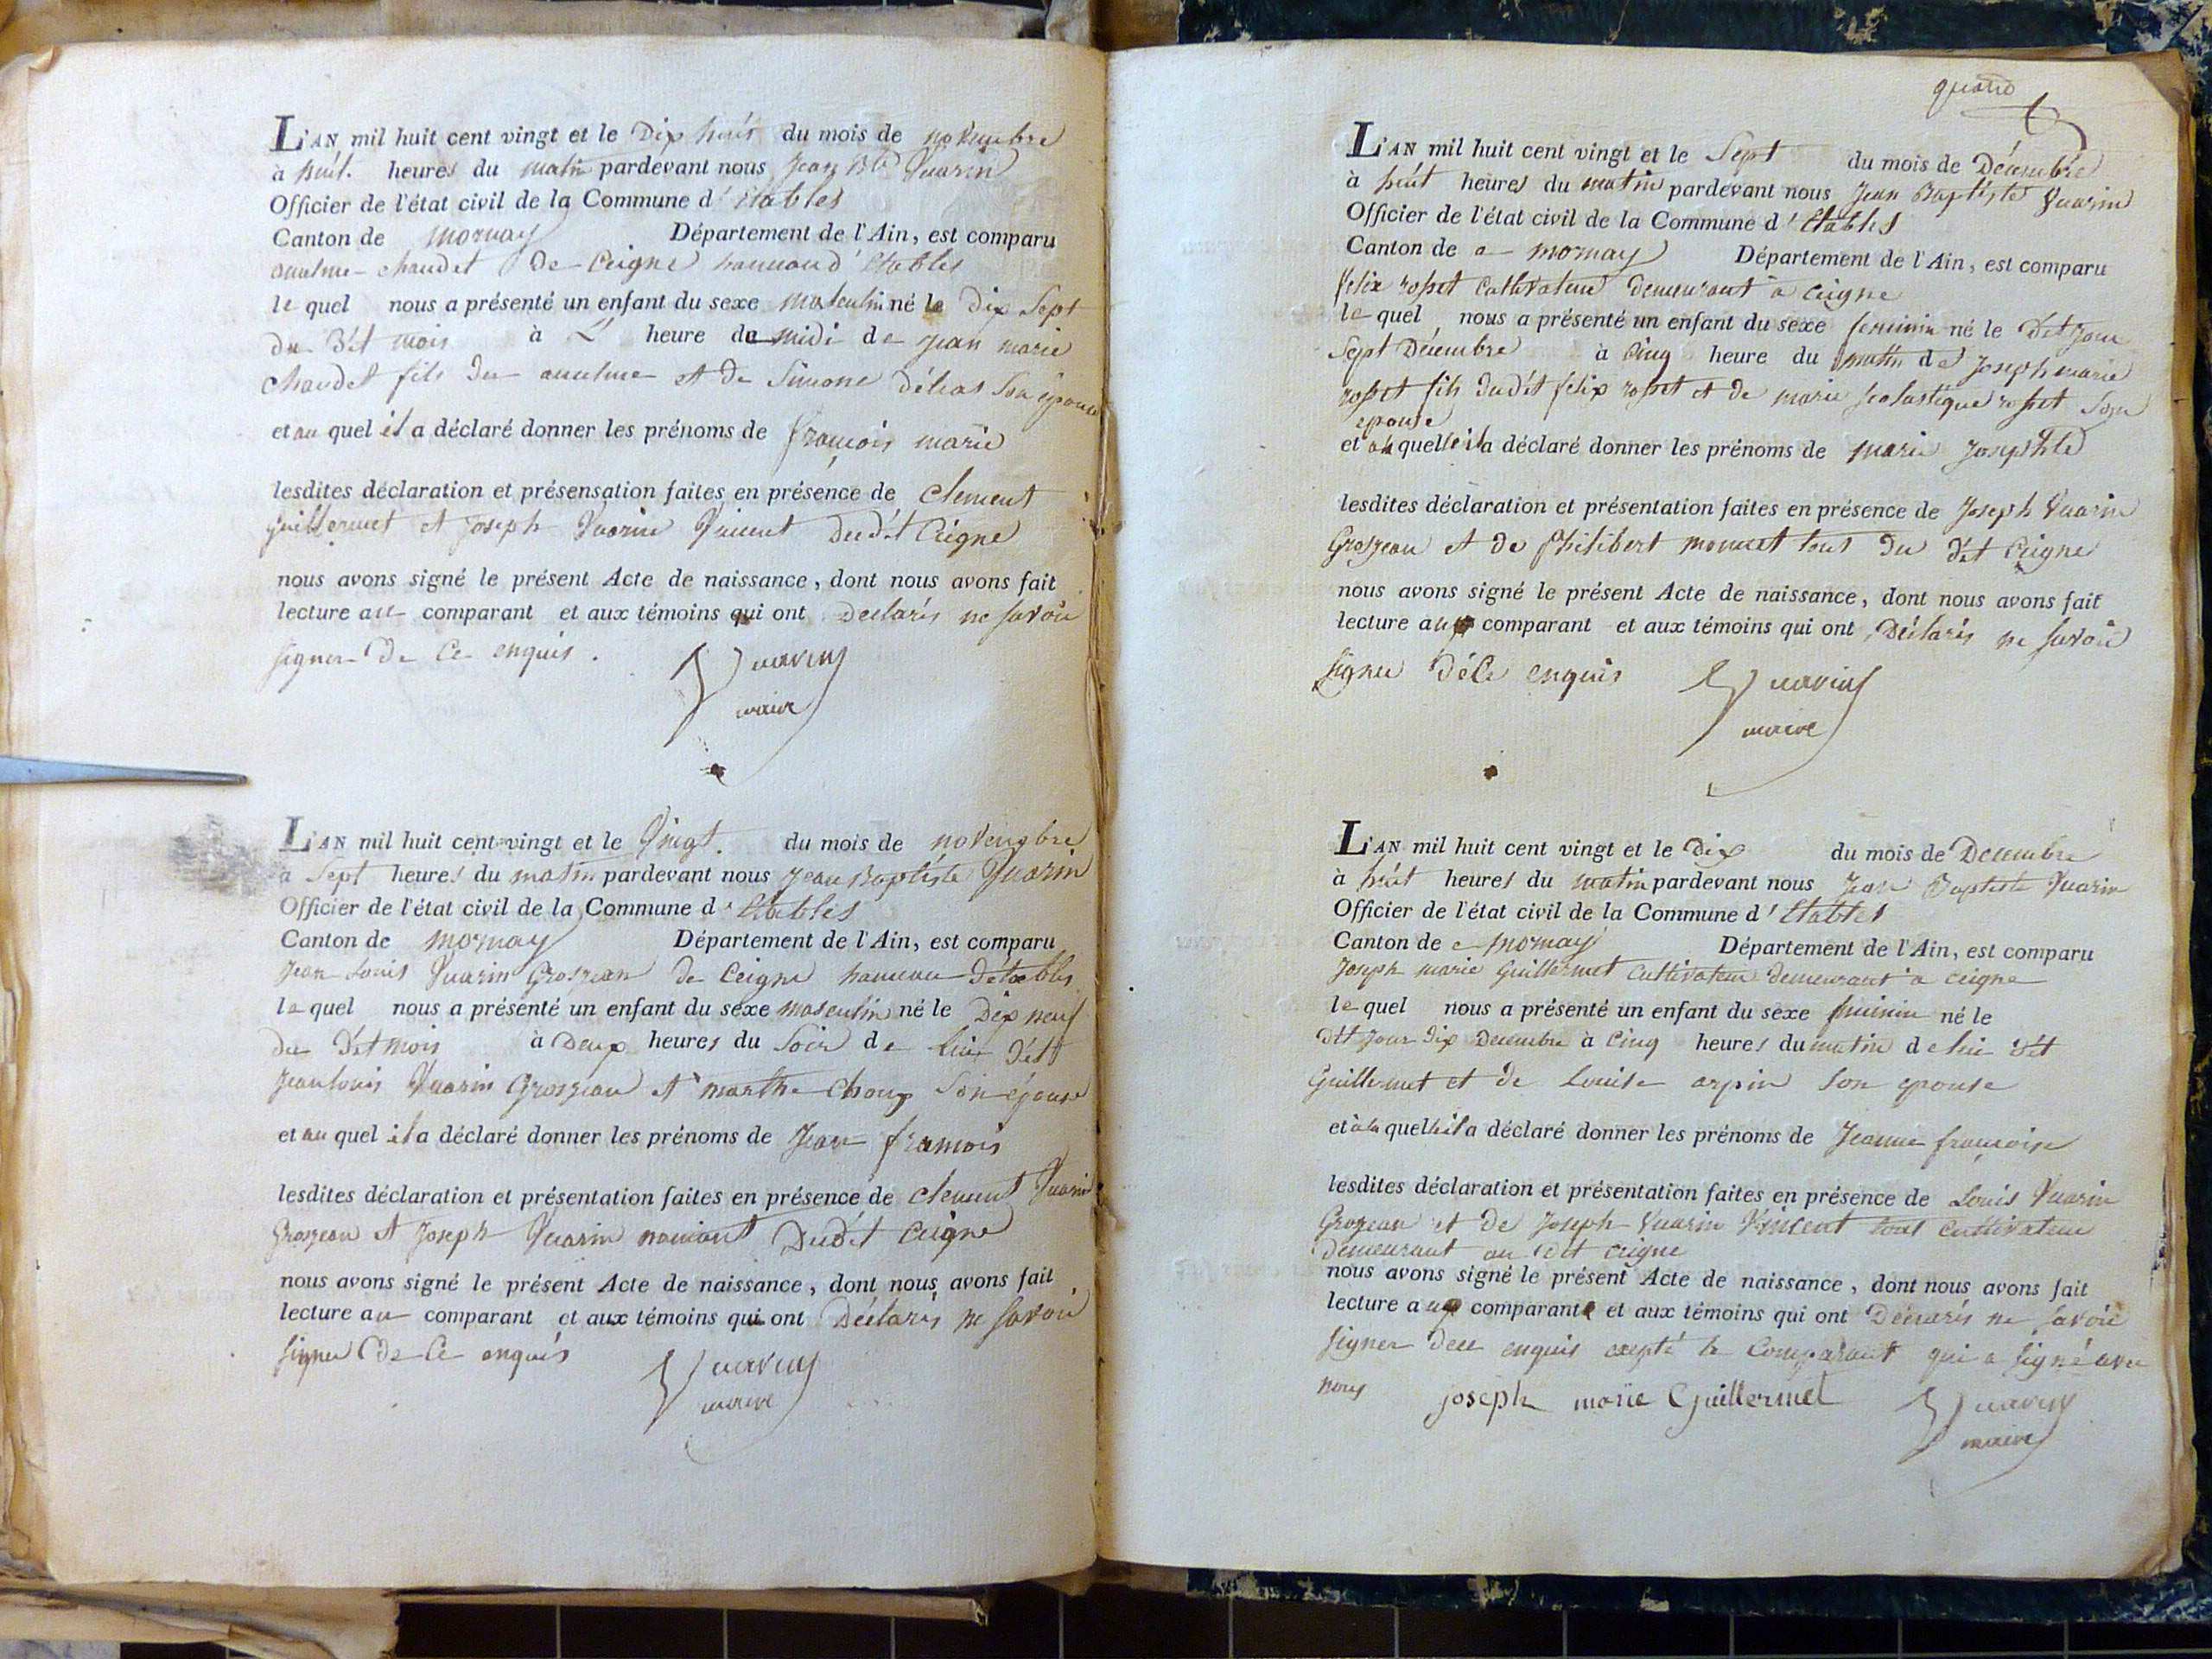 L'AN mil huit cent vingt et le Dix huit du mois de novembre
à huit heures du matin pardevant nous Jean Bte Vuarin
Officier de l'état civil de la Commune d'Etables
Canton de mornay Département de l'Ain, est comparu
anselme chaudet de Ceigne hameau d'Etables
le quel nous a présenté un enfant du sexe masculin né le Dix Sept
du dit mois à heure de midi de jean marie
Chaudet fils du anselme et de Simone son épouse
et au quel il a déclaré donner les prénoms de françois marie
lesdites déclaration et présensation faites en présence de Clement
Guillermet et Joseph Vuarin Vincent dudit Ceigne
nous avons signé le présent Acte de naissance, dont nous avons fait
lecture au comparant et aux témoins qui ont Declarés ne savoir
signer De Ce enquis.
Vuarin
maire
L'AN mil huit cent vingt et le Vingt. du mois de novembre
à Sept heures du matin pardevant nous Jean Baptiste Vuarin
Officier de l'état civil de la Commune d'Etables
Canton de mornay Département de l'Ain, est comparu
Jean Louis Vuarin Grosjean de Ceigne hameau detables
le quel nous a présenté un enfant du sexe masculin né le Dix neuf
du dit mois à Deux heures du Soir de lui dit
Jean louis Vuarin Grosjean et marthe Choux Son épouse
et au quel il a déclaré donner les prénoms de Jean françois
lesdites déclaration et présentation faites en présence de Clement Vuarin
Grosjean et Joseph Vuarin Dudit Ceigne
nous avons signé le présent Acte de naissance, dont nous avons fait
lecture au comparant et aux témoins qui ont Déclarés ne savoir
signer De Ce enquis
Vuarin
maire
quatre
L'AN mil huit cent vingt et le Sept du mois de Décembre
à huit heures du matin pardevant nous Jean Baptiste Vuarin
Officier de l'état civil de la Commune d'Etables
Canton de mornay Département de l'Ain, est comparu
felix rosset Cultivateur demeurant à ceigne
le quel nous a présenté un enfant du sexe feminin né le Dit jour
Sept Décembre à Cinq heure du matin de Joseph marie
rosset fils dudit felix rosset et de marie scolastique rosset Son
epouse
et a la quelle il a déclaré donner les prénoms de marie Josephte
lesdites déclaration et présentation faites en présence de Joseph Vuarin
Grosjean et de Philibert monnet tous du dit Ceigne
nous avons signé le présent Acte de naissance, dont nous avons fait
lecture au comparant et aux témoins qui ont Déclarés ne savoir
signer de Ce enquis
Vuarin
maire
L'AN mil huit cent vingt et le Dix du mois de Decembre
à huit heures du matin pardevant nous Jean Baptiste Vuarin
Officier de l'état civil de la Commune d'Etables
Canton de mornay Département de l'Ain, est comparu
Joseph marie Guillermet Cultivateur demeurant à ceigne
le quel nous a présenté un enfant du sexe feminin né le
dit jour dix Decembre à Cinq heures du matin de lui dit
Guillermet et de Louise arpin son epouse
et à la quelle il a déclaré donner les prénoms de Jeanne françoise
lesdites déclaration et présentation faites en présence de Louis Vuarin
Grosjean et de Joseph Vuarin Vincent tous cultivateur
demeurant au dit ceigne
nous avons signé le présent Acte de naissance, dont nous avons fait
lecture aux comparant et aux témoins qui ont Déclarés ne savoir
signer de ce enquis excepté le Comparant qui a signé avec
nous joseph marie Guillermet Vuarin
maire